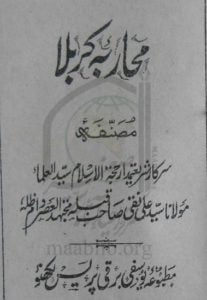 محاربۂ کربلا
مصنفۂ
سرکار شریعتمدار حجۃ الاسلام سید العلماء
مولانا سید علی نقی صاحب قبلہ مجتہد العصر دام ظلہ
مطبوعہ یوسفی برقی پریس لکھنؤ
maablib.org